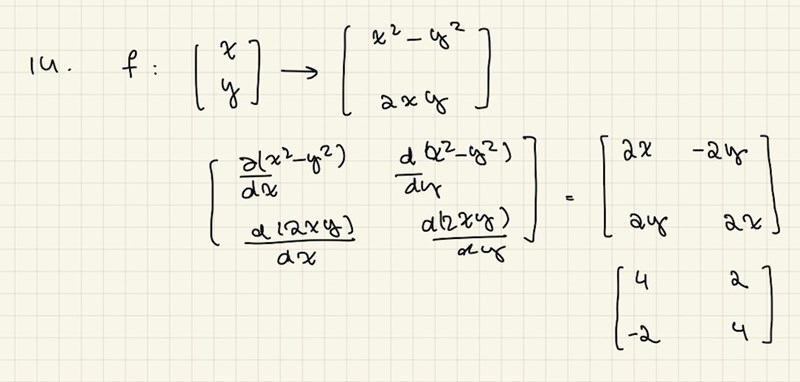 14. f : [ x y ] → [ x² - y² 2xy ]
[ ∂(x²-y²)/dx d(x²-y²)/dy ] = [ 2x -2y ]
[ d(2xy)/dx d(2xy)/dy ] [ 2y 2x ]
[ 4 2 ]
[ -2 4 ]